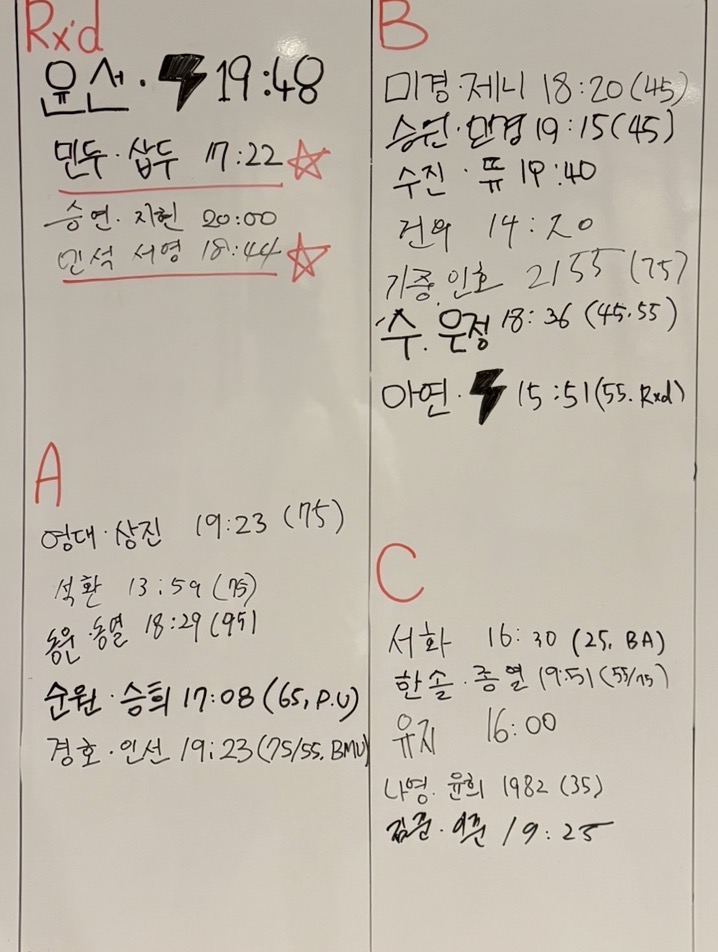 Rx'd
윤선· 19:48
민두·삽두 17:22
승연·지현 20:00
민석 서영 18:44
A
영대·상진 19:23 (75)
석환 13:59 (75)
동윤·동열 18:29 (95)
순원·승희 17:08 (65, P.U)
경호·인선 19:23 (75/55. BMU)
B
미경·제니 18:20 (45)
승원·민경 19:15 (45)
수진·쮸 19:40
건우 14:20
기중.인호 2155 (75)
수.은정 18:36 (45.55)
아연· 15:51 (55. Rxd)
C
서화 16:30 (25, BA)
한솔·종열 19:51 (55/75)
유지 16:00
나영·윤희 1982 (35)
19:25